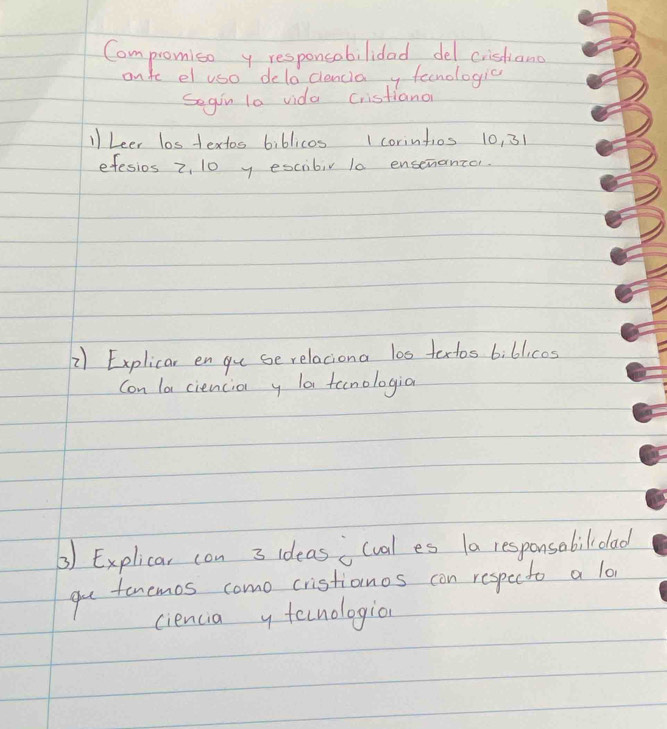 Compromiso y responsabilidad del cristiano
ante el uso de la ciencia y tecnologia
Segin la vida cristiana
1) Leer los textos biblicos 1 corintios 10,31
efesios 2,10 y escribir la enseñanza.
2) Explicar en que se relaciona los textos biblicos
Con la ciencia y la tecnologia
3) Explicar con 3 ideas ¿ Cual es la responsabilidad
que tenemos como cristianos con respecto a la
ciencia y tecnologia